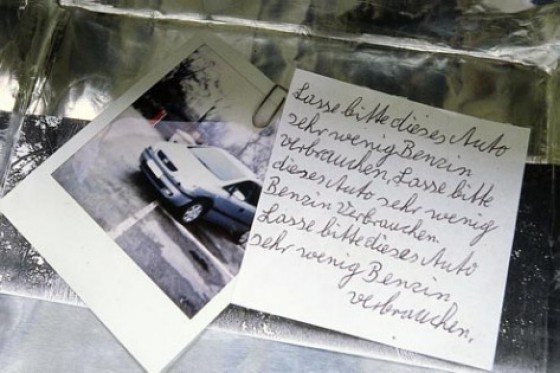 Lasse bitte dieses Auto
sehr wenig Benzin
verbrauchen. Lasse bitte
dieses Auto sehr wenig
Benzin verbrauchen.
Lasse bitte dieses Auto
sehr wenig Benzin
verbrauchen.